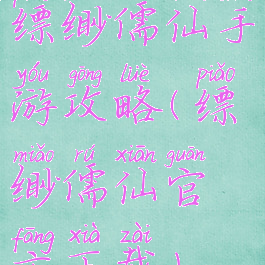 缥缈儒仙手
yóu gōng lüè piǎo
游攻略(缥
miǎo rú xiān guān
缈儒仙官
fāng xià zài
方下载)